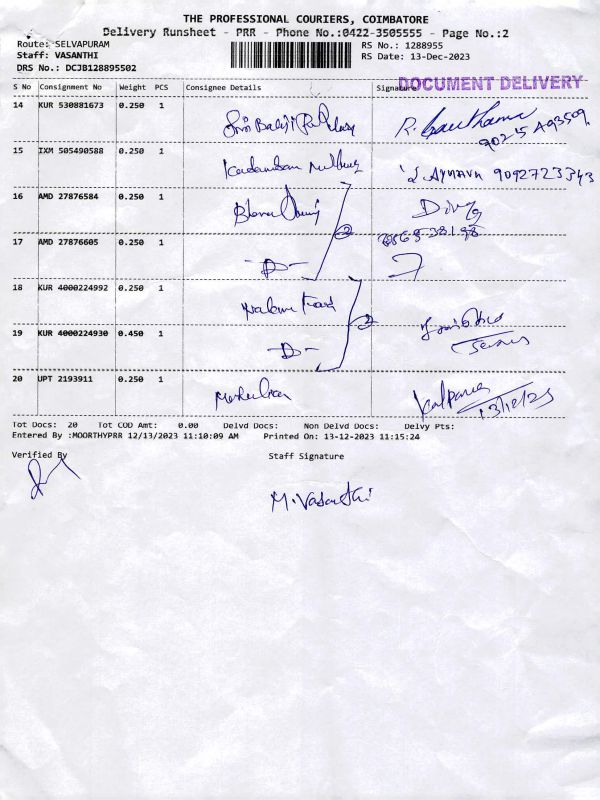 THE PROFESSIONAL COURIERS, COIMBATORE
Delivery Runsheet - PRR - Phone No.:0422-3505555 - Page No.:2
Route: SELVAPURAM RS No.: 1288955
Staff: VASANTHI RS Date: 13-Dec-2023
DRS No.: DCJB128895502
DOCUMENT DELIVERY
S No Consignment No Weight PCS Consignee Details Signature
14 KUR 530881673 0.250 1
15 IXM 505490588 0.250 1 9092723343
16 AMD 27876584 0.250 1
17 AMD 27876605 0.250 1 - D -
18 KUR 4000224992 0.250 1
19 KUR 4000224930 0.450 1 - D -
20 UPT 2193911 0.250 1 Kalpana
13/12/23
Tot Docs: 20 Tot COD Amt: 0.00 Delvd Docs: Non Delvd Docs: Delvy Pts:
Entered By :MOORTHYPRR 12/13/2023 11:10:09 AM Printed On: 13-12-2023 11:15:24
Verified By Staff Signature
M. Vasanthi